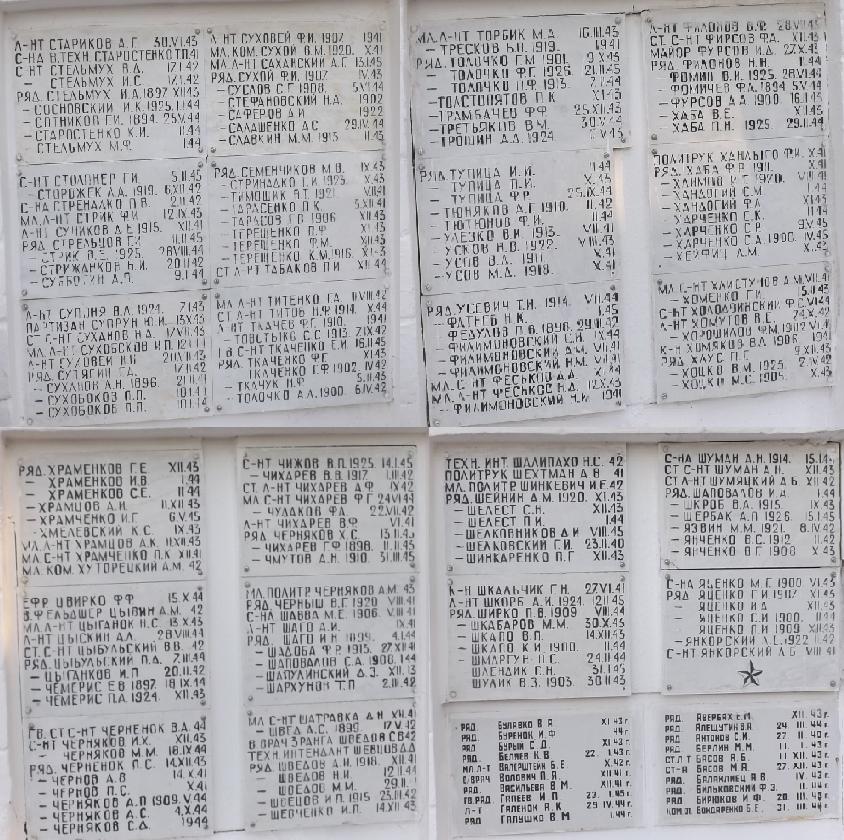 Л-НТ СТАРИКОВ А.Г. 30.VI.43
С-НА В.ТЕХН СТАРОСТЕНКО Т.П. 41
С-НТ СТЕЛЬМУХ В.Д. 17.I.42
— СТЕЛЬМУХ И.С. 17.I.42
РЯД. СТЕЛЬМУХ И.А. 1897 XII.43
— СОСНОВСКИЙ И.К. 1925. I.44
— СОТНИКОВ Г.И. 1894. 25.V.44
— СТАРОСТЕНКО К.И. II.44
— СТЕЛЬМУХ М.Ф. I.44
С-НТ СТОЛПНЕР Г.И. 5.II.45
— СТОРОЖЕК А.А. 1919. 6.XII.42
С-НА СТРЕНАДКО П.В. 2.II.42
МЛ. Л-НТ СТРИК Ф.И. 12.IX.43
Л-НТ СУЧИКОВ Д.Е. 1915. VII.41
РЯД. СТРЕЛЬЦОВ Г.И. 11.II.45
— СТРИК В.Е. 1925. 28.VIII.44
— СТРИЖАНКОВ Н.И. 20.II.42
— СУББОТИН А.П. 9.I.44
Л-НТ СУПДНЯ В.Д. 1924. 7.I.43
ПАРТИЗАН СУПРУН Ю.И. 13.X.43
СТ. С-НТ СУХАНОВ Н.Д. 17.VII.43
МЛ. Л-НТ СУХОБСКОВ И.П.
Л-НТ СУХОВЕЙ
РЯД. СУТЯГИН Г.А. II.42
— СУХАНОВ А.Н. 1896. 21.II.41
— СУХОБОКОВ П.П. 10.I.14
— СУХОБОКОВ П.П. 10.I.14
Л-НТ СУХОВЕЙ Ф.И. 1907. 1941
МЛ. КОМ. СУХОЙ В.М. 1920. X.41
МЛ. Л-НТ САХАНСКИЙ А.Г. 13.I.45
РЯД. СУХОЙ Ф.И. 1907. IV.43
— СУСЛОВ С.Г. 1908. 5.VI.44
— СТЕФАНОВСКИЙ Н.Д. 1902
— САФЕРОВ Д.И. 1922
— САЛАШЕНКО Д.С. 29.IV.44
— СЛАВКИН М.М. 1913 II.45
РЯД. СЕМЕНЧИКОВ М.В. IX.43
— СТРИНАДКО Г.И. 1925. X.43
— ТИМОШИК А.Т. 1921. VII.41
— ТАРАСЕНКО П.К. 3.XII.41
— ТАРАСОВ Г.Р. 1906 VII.43
— ТЕРЕЩЕНКО П.Ф. XI.43
— ТЕРЕЩЕНКО Ф.М. XII.43
— ТЕРЕЩЕНКО К.М. 1916.
СТ. Л-НТ ТАБАКОВ П.И. XII.44
МЛ. Л-НТ ТИТЕНКО Г.А. VIII.42
СТ. Л-НТ ТИТОВ Н.Ф. 1914. X.44
Л-НТ ТКАЧЕВ Ф.Г. 1910. 1941
— ТОВСТЫКО С.С. 1915. 7.IX.42
ГВ. С-НТ ТКАЧЕНКО Е.И. 16.II.45
РЯД. ТКАЧЕНКО Ф.Г. XI.43
— ТКАЧЕНКО Г.Ф. 1902. IV.42
— ТКАЧУК Н.Ф. 5.II.45
— ТОЛОЧКО А.Л. 1900. 6.IV.42
МЛ. Л-НТ ТОРБИК М.Д. 16.III.43
— ТРЕСКОВ Н.П. 1919. 1941
РЯД. ТОЛОЧКО Г.М. 1901. 9.X.43
— ТОЛОЧКО Ф.Г. 1926. 21.II.45
— ТОЛОЧКО П.Ф. 1913. 7.I.44
— ТОЛСТОПЯТОВ П.К. XI.43
— ТРАМБАЧЕВ Ф.Ф. 25.XII.43
— ТРЕТЬЯКОВ В.М. 30.V.44
— ТРОШИН Д.Д. 1924. V.43
РЯД. ТУПИЦА И.И. 1.44
— ТУПИЦА П.И. X.43
— ТУПИЦА Ф.Р. 25.IX.44
— ТЮНЯКОВ Д.Г. 1910. II.42
— ТЮТЮНОВ Ф.И. II.44
— УЛЕЗКО В.И. 1913. VII.41
— УСКОВ Н.В. 1922. VIII.43
— УСОВ В.Д. 1911. X.41
— УСОВ М.Д. 1918. X.41
РЯД. УСЕВИЧ Т.Н. 1914. VII.44
— ФАТНЕВ Н.К. I.45
— ФЕДУЛОВ П.Б. 1896. 29.III.42
— ФИЛИМОНОВСКИЙ С.И. IX.44
— ФИЛИМОНОВСКИЙ Д.М. VII.41
— ФИЛИМОНОВСКИЙ Н.М. VII.41
МЛ. С-НТ ФЕСЬКОВ Д.Д. X.41
МЛ. Л-НТ ФЕСЬКОВ Н.Д. 12.X.43
— ФИЛИМОНОВСКИЙ Н.И. 1941
Л-НТ ФИЛОНОВ В.Ф. 28.VII.43
СТ. С-НТ ФИРСОВ Ф.А. XII.43
МАЙОР ФУРСОВ И.Д. 27.X.43
РЯД. ФИЛОНОВ Н.Н. II.44
— ФОМИН В.И. 1925. 28.VI.44
— ФОМИЧЕВ Ф.А. 1894 5.V.44
— ФУРСОВ Д.Д. 1900. 16.I.43
— ХАБА В.Е. XII.43
— ХАБА П.Н. 1925. 29.II.44
ПОЛИТРУК ХАНДЫГО Ф.И. X.41
РЯД. ХАБА Ф.Р. 1911. X.41
— ХАНДОГИЙ С.М. I.44
— ХАНДОГИН Ф.А. XI.43
— ХАРЧЕНКО С.К. II.44
— ХАРЧЕНКО С.Р. 9.V.45
— ХАРЧЕНКО С.А. 1906. IV.45
— ХЕЙФИЦ Л.М. X.43
МЛ. С-НТ ХЛИСТУНОВ Д.М. VIII.41
— ХОМЕРКО Г.И. 15.II.43
С-НТ ХОЛОДЯИНСКИЙ Ф.С. VI.44
Л-НТ ХОМУТОВ В.С. 24.X.42
— ХОРОШИЛОВ Ф.М. 1902 VI.41
К-Н ХОМЯКОВ В.Л. 1906. 1941
РЯД. ХАУС П.Г. 9.XII.43
— ХОЦКО В.М. 1925. 2.IV.42
— ХОЦКО М.С. 1905. X.43
РЯД. ХРАМЕНКОВ Г.Е. XII.43
— ХРАМЕНКОВ И.В. I.44
— ХРАМЕНКОВ С.Е. II.44
— ХРАМЦОВ А.И. II.XII.43
— ХРАМЧЕНКО И.Г. 6.V.45
— ХМЕЛЕВСКИЙ К.С. IX.43
МЛ. Л-НТ ХРАМЦОВ А.К. II.XII.43
МЛ. С-НТ ХРАМЧЕНКО П.К. XII.41
МЛ. КОМ. ХУТОРЕЦКИЙ А.М. 42
ЕФР. ЦВИРКО Ф.Ф. 15.X.44
В. ФЕЛЬДШЕР ЦЫВИН А.М. 42
МЛ. Л-НТ ЦЫГАНОК Н.С. 13.X.43
Л-НТ ЦЫСКИН Д.Л. 28.VIII.44
СТ. С-НТ ЦЫБУЛЬСКИЙ В.В. 42
РЯД. ЦЫБУЛЬСКИЙ П.Д. 7.III.44
— ЦЫГАНКОВ И.П. 20.II.42
— ЧЕМЕРИС Е.В. 1897. 18.IX.44
— ЧЕМЕРИС П.А. 1924. XII.43
ГВ. СТ. С-НТ ЧЕРНЕНОК В.Д. 44
С-НТ ЧЕРНЯКОВ И.Х. XII.43
— ЧЕРНЯКОВ М.М. 18.IX.44
РЯД. ЧЕРНЕНОК П.С. 14.XII.43
— ЧЕРНОВ А.В. 14.X.41
— ЧЕРНОВ П.С. X.41
— ЧЕРНЯКОВ Д.П. 1909. V.44
— ЧЕРНЯКОВ А.С. 4.X.44
— ЧЕРНЯКОВ С.Д. 1944
С-НТ ЧИЖОВ В.П. 1925. 14.I.45
— ЧИХАРЕВ В.В. 1917. I.III.42
СТ. Л-НТ ЧИХАРЕВ Д.Ф. IX.42
МЛ. С-НТ ЧИХАРЕВ Ф.Г. 24.VI.44
— ЧУДАКОВ Ф.А. 22.VII.42
Л-НТ ЧИХАРЕВ В.Ф. VI.41
РЯД. ЧЕРНЯКОВ Х.С. 13.II.45
— ЧИХАРЕВ Г.Ф. 1898. 11.II.45
— ЧМУТОВ Д.Н. 1910. 31.III.45
МЛ. ПОЛИТР. ЧЕРНЯКОВ А.М. 43
РЯД. ЧЕРНЫШ В.Г. 1920 VIII.41
С-НА ШАВВА М.Е. 1906. VIII.41
Л-НТ ШАГО А.И. IX.41
РЯД. ШАГО И.Н. 1899. 4.I.44
— ШАДОБА Ф.Р. 1915. 27.XII.41
— ШАПОВАЛОВ С.А. 1900. I.44
— ШАПУЛИНСКИЙ Д.З. XII.43
— ШАРХУНОВ Т.П. 2.III.42
МЛ. С-НТ ШАТРАВКА Д.Н. XII.41
— ШВЕД А.С. 1899. 17.V.42
В. ВРАЧ 3 РАНГА ШВЕДОВ С.В. 42
ТЕХН. ИНТЕНДАНТ ШЕВЦОВ Д.Д.
РЯД. ШВЕДОВ А.И. 1918. XII.41
— ШВЕДОВ Н.И. 12.II.44
— ШВЕДОВ М.М. 29.II.
— ШВЕЦОВ И.П. 1915 23.III.42
— ШЕВЧЕНКО И.П. 14.XII.43
ТЕХН. ИНТ. ШАЛИПАХО Н.С. 42
ПОЛИТРУК ШЕХТМАН Д.Н. 41
МЛ. ПОЛИТР. ШИНКЕВИЧ И.Е. 42
РЯД. ШЕЙНИН Д.М. 1920. XI.43
— ШЕЛЕСТ С.Н. XII.43
— ШЕЛЕСТ П.И. I.44
— ШЕЛКОВНИКОВ Д.И. VIII.45
— ШЕЛКОВСКИЙ Г.И. 23.II.40
— ШИНКАРЕНКО П.Г. XII.43
К-Н ШКАЛЬЧИК Г.Н. 27.VI.41
Л-НТ ШКОРБ А.И. 1924. 12.II.45
РЯД. ШИРКО П.В. 1909 VII.44
— ШКАБАРОВ М.М. 30.X.45
— ШКАПО В.П. 14.XII.43
— ШКАПО К.И. 1900. II.44
— ШМАРГУН П.С. 24.II.44
— ШЛЕНДИК Г.Н. 31.I.45
— ШУЛИК В.З. 1903. 30.II.43
С-НА ШУМАН А.Н. 1914. 15.I.4
СТ. С-НТ ШУМАН Д.Н. XII.43
СТ. Л-НТ ШУМЯЦКИЙ Д.Б. XII.42
РЯД. ШАПОВАЛОВ И.Д. I.44
— ШКРОБ В.А. 1915. IX.43
— ЩЕРБАК А.П. 1926. 15.I.45
— ЯЗВИН М.М. 1921. 8.IV.42
— ЯНЧЕНКО В.С. 1912 II.42
— ЯНЧЕНКО В.Г. 1908 X.43
С-НА ЯЦЕНКО М.Г. 1900. VI.43
РЯД. ЯЦЕНКО Г.И. 1907. XI.43
— ЯЦЕНКО И.Д. XII.43
— ЯЦЕНКО С.И. 1900. II.44
— ЯЦЕНКО П.И. 1909. XII.43
— ЯНКОРСКИЙ Л.Е. 1922 II.42
С-НТ ЯНКОРСКИЙ Л.Б. VIII.41
РЯД. БУЛАВКО В.Я. XI.43 г.
РЯД. БУРЕНОК И.Ф. 44 г.
РЯД. БУРЫЙ С.Д. XI.43 г.
РЯД. БЕЛЯЕВ К.В. 22. I.43 г.
МЛ. Л-Т ВАЛЕРШТЕЙН Б.Е. X.42 г.
С/ВРАЧ ВОЛОВИЧ П.Я. XII.41 г.
РЯД. ВАСИЛЬЕВА В.М. XII.41 г.
ГВ.РЯД. ГАЛЕЕВ И.П. 23. I.45 г.
Л-Т ГАЛЕНОК Я.К. 29.IV.42 г.
РЯД. ГАЛУШКО В.М. I.44 г.
РЯД. АВЕРБАХ Е.М. XII.43 г.
РЯД. АЛЕШУТИН В.Я. 24. III.44 г.
РЯД. АНТОНОВ С.И. 27. II.40 г.
РЯД. БЕРЛИН М.М. 11. I.43 г.
СТ.Л-Т БАСОВ Я.Б. 11. XII.43 г.
СТ-Н БАСОВ М.Я. 27. XII.43 г.
РЯД. БАЛАНДИЕЦ Я.В. IV.43 г.
РЯД. БИЛЬКОВСКИЙ Ф.З. III.44 г.
РЯД. БИРЮКОВ И.Ф. 20. III.43 г.
КОМ.ЗВ. БОНДАРЕНКО Б.Е. 31. III.44 г.